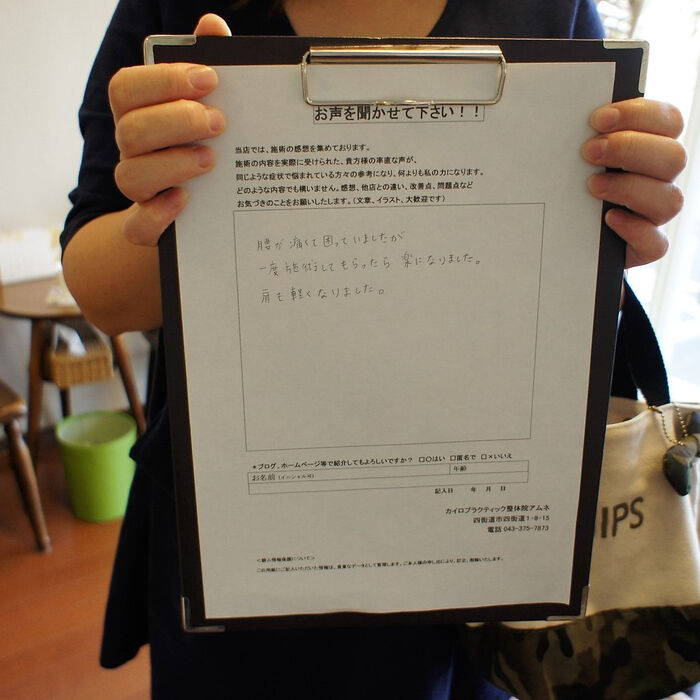 お声を聞かせて下さい！！
当店では、施術の感想を集めております。
施術の内容を実際に受けられた、貴方様の率直な声が、
同じような症状で悩まれている方々の参考になり、何よりも私の力になります。
どのような内容でも構いません。感想、他店との違い、改善点、問題点など
お気づきのことをお願いしたします。（文章、イラスト、大歓迎です）
腰が痛くて困っていましたが
一度施術してもらったら 楽になりました。
肩も軽くなりました。
★ブログ、ホームページ等で紹介してもよろしいですか？ □〇はい □匿名で □×いいえ
お名前（イニシャル可） 年齢
記入日 年 月 日
カイロプラクティック整体院アムネ
四街道市四街道1-8-15
電話 043-375-7873
＜個人情報保護について＞
この用紙にご記入いただいた情報は、貴重なデータとして管理します。ご本人様の申し出により、訂正、削除いたします。
IPS